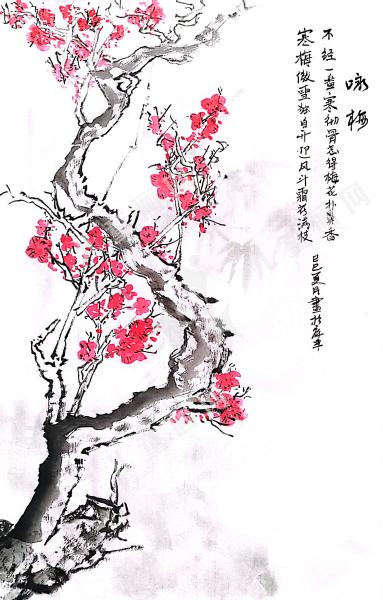 咏梅
不经一番寒彻骨怎得梅花扑鼻香
寒梅傲雪独自开迎风斗霜花满枝
己巳夏月画於